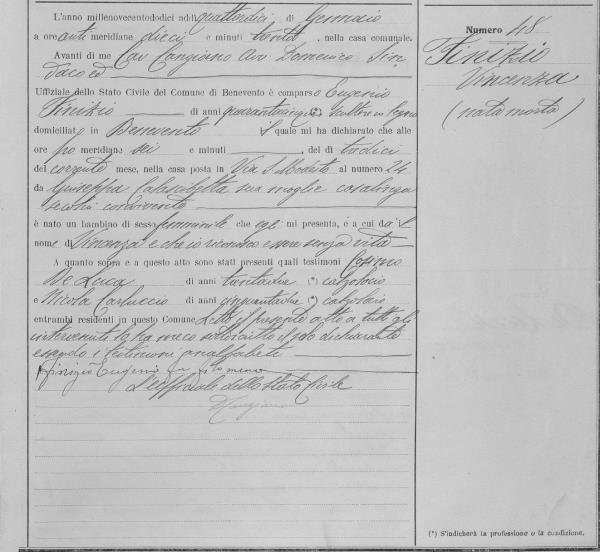 L'anno millenovecentododici addì quattordici di Gennaio
a ore anti meridiane dieci e minuti trenta, nella casa comunale.
Avanti di me Cav Cangiano Avv Domenico Sin
daco ed
Uffiziale dello Stato Civile del Comune di Benevento è comparso Eugenio
Finizio di anni quarantacinque (*) scultore in legno
domiciliato in Benevento il quale mi ha dichiarato che alle
ore po meridiane sei e minuti, del dì tredici
del corrente mese, nella casa posta in Via S. Modesto al numero 24
da Giuseppa sua moglie casalinga
seco lui convivente
è nato un bambino di sesso femminile che egli mi presenta, e a cui dà il
nome di Vincenza e che io riconosco essere senza vita
A quanto sopra e a questo atto sono stati presenti quali testimoni Cosimo
De Luca di anni trentadue (*) calzolaio
e Nicola Carluccio di anni cinquantadue (*) calzolaio
entrambi residenti in questo Comune. Letto il presente atto a tutti gli
intervenuti lo ha meco sottoscritto il solo dichiarante
essendo i testimoni analfabeti
Finizio Eugenio
L'ufficiale dello Stato Civile
DCangiano
Numero 48
Finizio
Vincenza
(nata morta)
(*) S'indicherà la professione o la condizione.